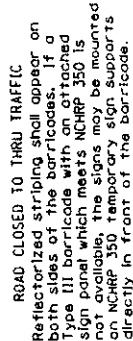 ROAD CLOSED TO THRU TRAFFIC
Reflectorized striping shall appear on
both sides of the barricades. If a
Type III barricade with an attached
sign panel which meets NCHRP 350 is
not available, the signs may be mounted
on NCHRP 350 temporary sign supports
directly in front of the barricade.